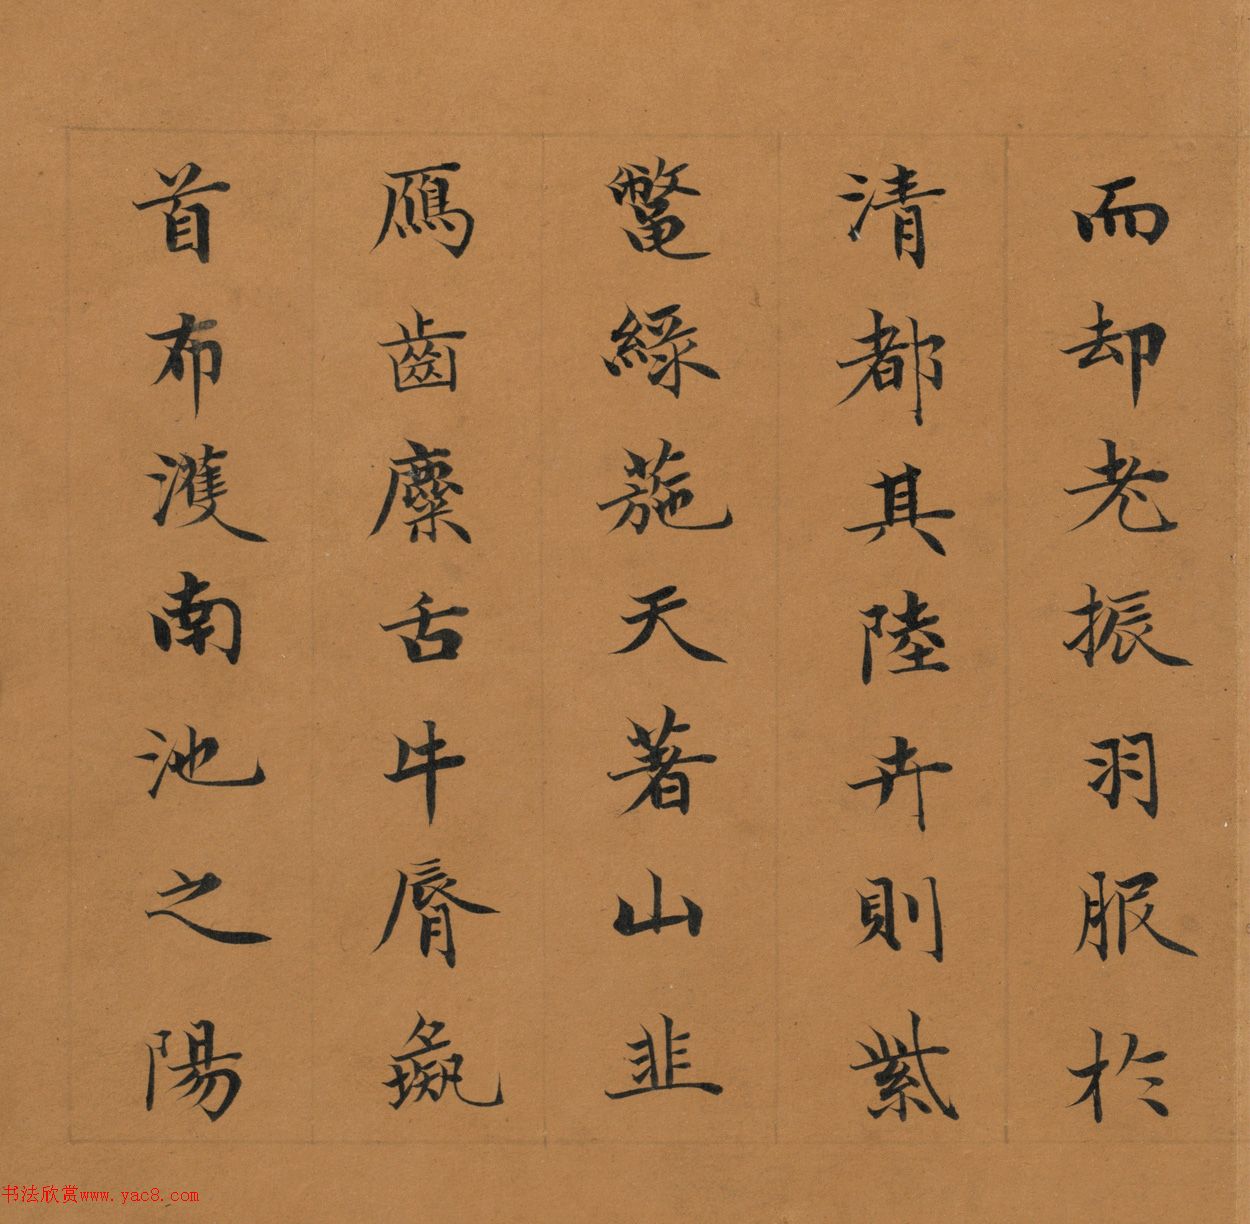 而却老振羽服於
清都其陸卉則紫
虌綠葹天蓍山韭
鴈齒麋舌牛脣彘
首布濩南池之陽
书法欣赏www.yac8.com